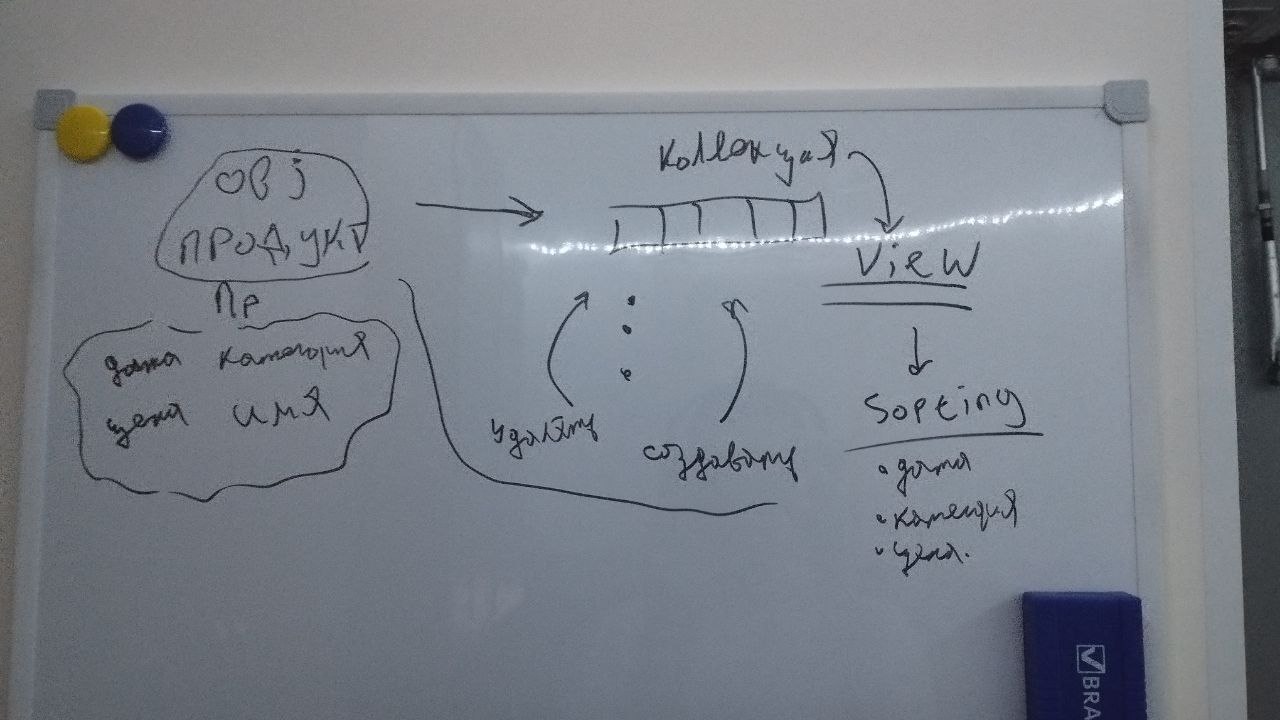 ОВj
ПРОДУКТ
Пр
дата категория
цена имя
Коллекция
View
удалять
создавать
Sорting
• дата
• категория
• цена.
BRA